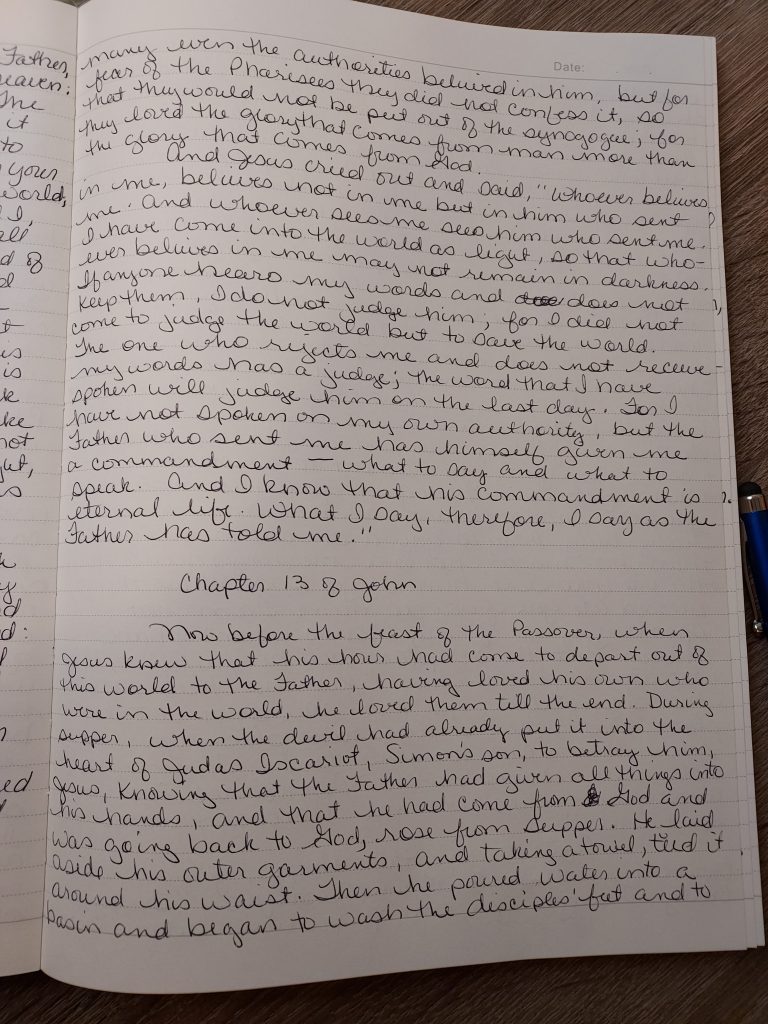 Father,
heaven:
The
it
to
your
world,
I,
all
d of
is
ke
not
ut,
d:
ed
Date:
many even the authorities believed in him, but for
fear of the Pharisees they did not confess it, so
that they would not be put out of the synogogue; for
they loved the glory that comes from man more than
the glory that comes from God.
And Jesus cried out and said, "Whoever believes
in me, believes not in me but in him who sent
me. And whoever sees me sees him who sent me.
I have come into the world as light, so that who-
ever believes in me may not remain in darkness.
If anyone hears my words and does not
keep them, I do not judge him; for I did not
come to judge the world but to save the world.
The one who rejects me and does not receive
my words has a judge; the word that I have
spoken will judge him on the last day. For I
have not spoken on my own authority, but the
Father who sent me has himself given me
a commandment — what to say and what to
speak. And I know that his commandment is
eternal life. What I say, therefore, I say as the
Father has told me."
Chapter 13 of John
Now before the feast of the Passover, when
Jesus knew that his hour had come to depart out of
this world to the Father, having loved his own who
were in the world, he loved them till the end. During
supper, when the devil had already put it into the
heart of Judas Iscariot, Simon's son, to betray him,
Jesus, knowing that the Father had given all things into
his hands, and that he had come from God and
was going back to God, rose from supper. He laid
aside his outer garments, and taking a towel, tied it
around his waist. Then he poured water into a
basin and began to wash the disciples' feet and to